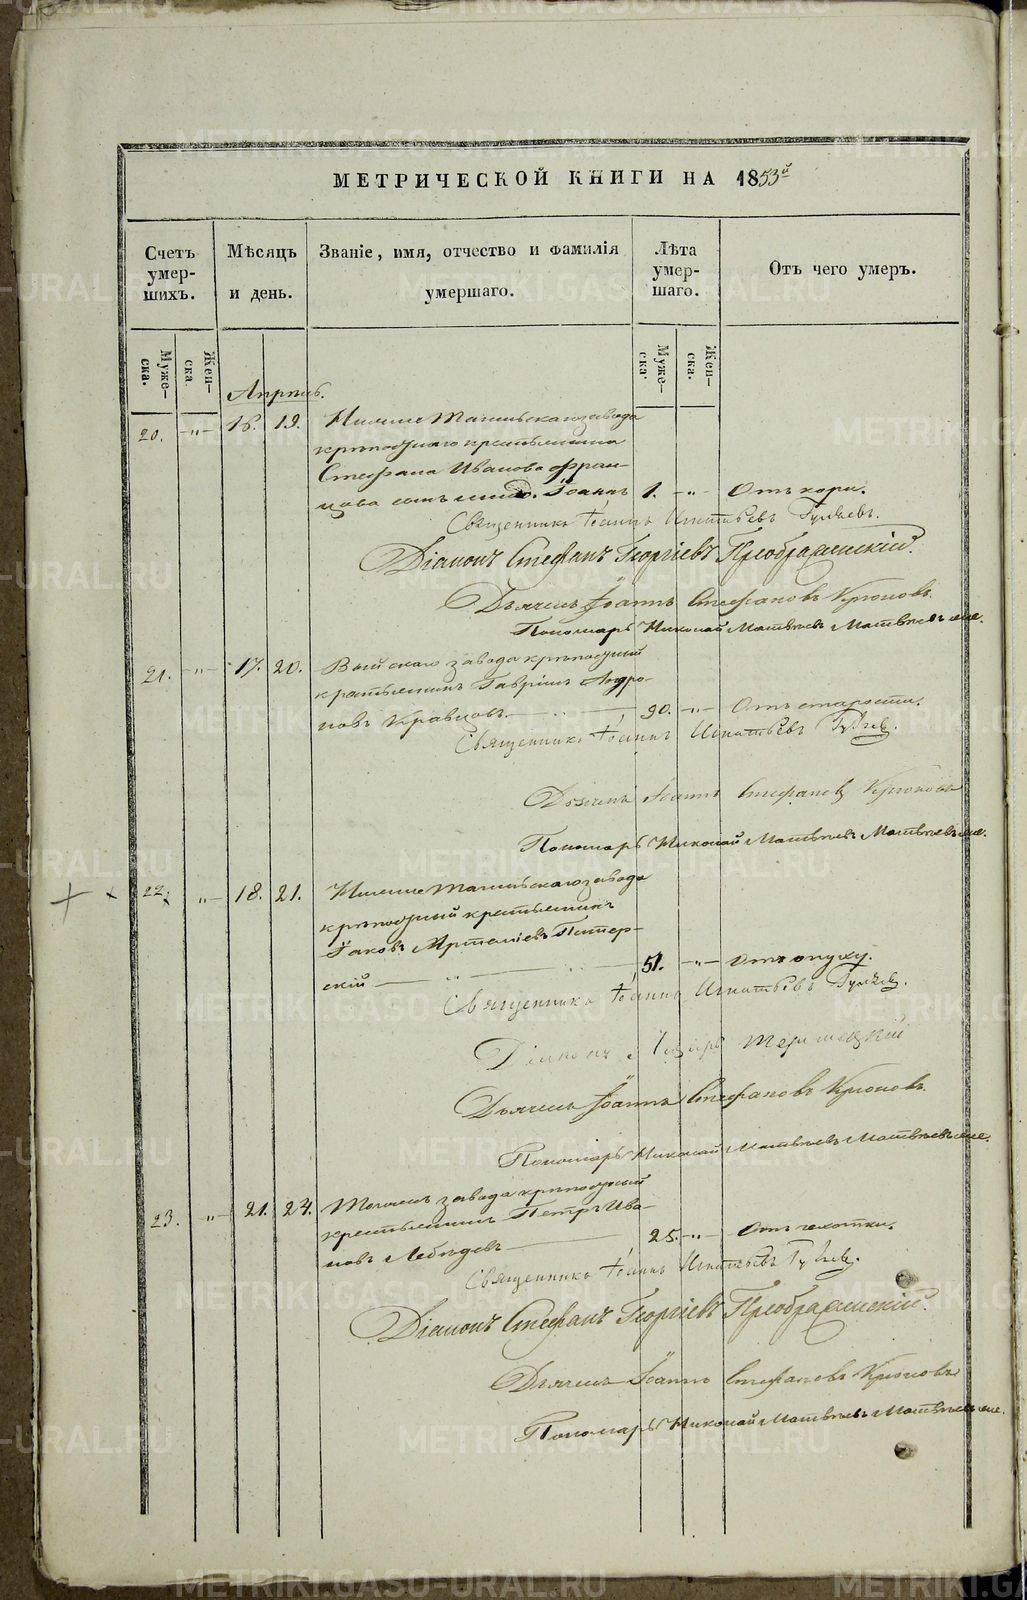 МЕТРИЧЕСКОЙ КНИГИ НА 1853й
Счетъ умер-шихъ.
Мѣсяцъ и день.
Званіе, имя, отчество и фамилія умершаго.
Лѣта умер-шаго.
Отъ чего умеръ.
Муже-ска.
Жен-ска
Муже-ска.
Жен-ска.
Апрѣль.
20. -„- 16. 19. Нижне Тагильскаго завода
крѣпостнаго крестьянина
Стефана Иванова
сынъ Іоаннъ 1. -„- Отъ кори.
Священникъ Іоаннъ Игнатьевъ
Діаконъ Стефанъ Георгіевъ Преображенскій.
Дьячекъ Іоаннъ Стефановъ Крюковъ
Пономарь Николай Матвѣевъ Матвѣевъ же.
21. -„- 17. 20. Выйскаго завода крѣпостный
крестьянинъ Гавріилъ Андро-
новъ Кравцовъ. 90. -„- Отъ старости.
Священникъ Іоаннъ Игнатьевъ
Дьячекъ Іоаннъ Стефановъ Крюковъ
Пономарь Николай Матвѣевъ Матвѣевъ же.
22. „- 18. 21. Нижне Тагильскаго завода
крѣпостный крестьянинъ
Іаковъ Питер-
скій 51. -„- Отъ опуху.
Священникъ Іоаннъ Игнатьевъ
Діаконъ
Дьячекъ Іоаннъ Стефановъ Крюковъ
Пономарь Николай Матвѣевъ Матвѣевъ же.
23. „- 21. 24. завода крѣпостный
крестьянинъ Петръ Ива-
новъ Лебедевъ 25. -„- Отъ чахотки.
Священникъ Іоаннъ Игнатьевъ
Діаконъ Стефанъ Георгіевъ Преображенскій.
Дьячекъ Іоаннъ Стефановъ Крюковъ
Пономарь Николай Матвѣевъ Матвѣевъ же.
METRIKI.GASO-URAL.RU